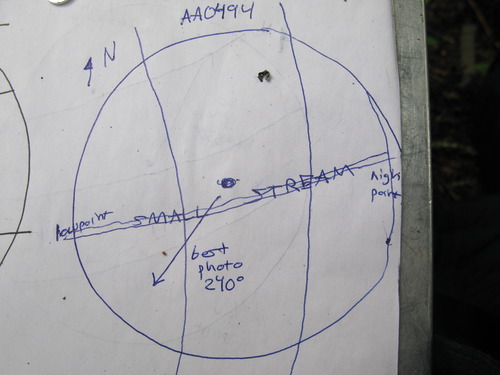 AA0494
N
high
point
SMALL STREAM
lowpoint
best
photo
240°